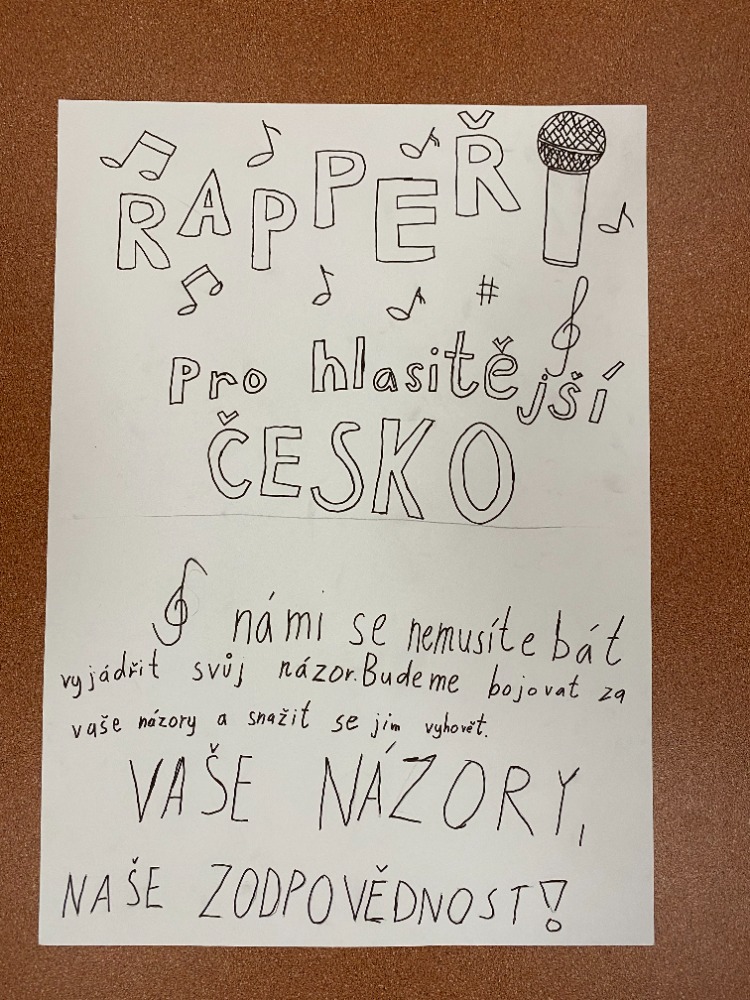 RAPPEŘI
# 
pro hlasitější
ČESKO
námi se nemusíte bát
vyjádřit svůj názor. Budeme bojovat za
vaše názory a snažit se jim vyhovět.
VAŠE NÁZORY,
NAŠE ZODPOVĚDNOST!